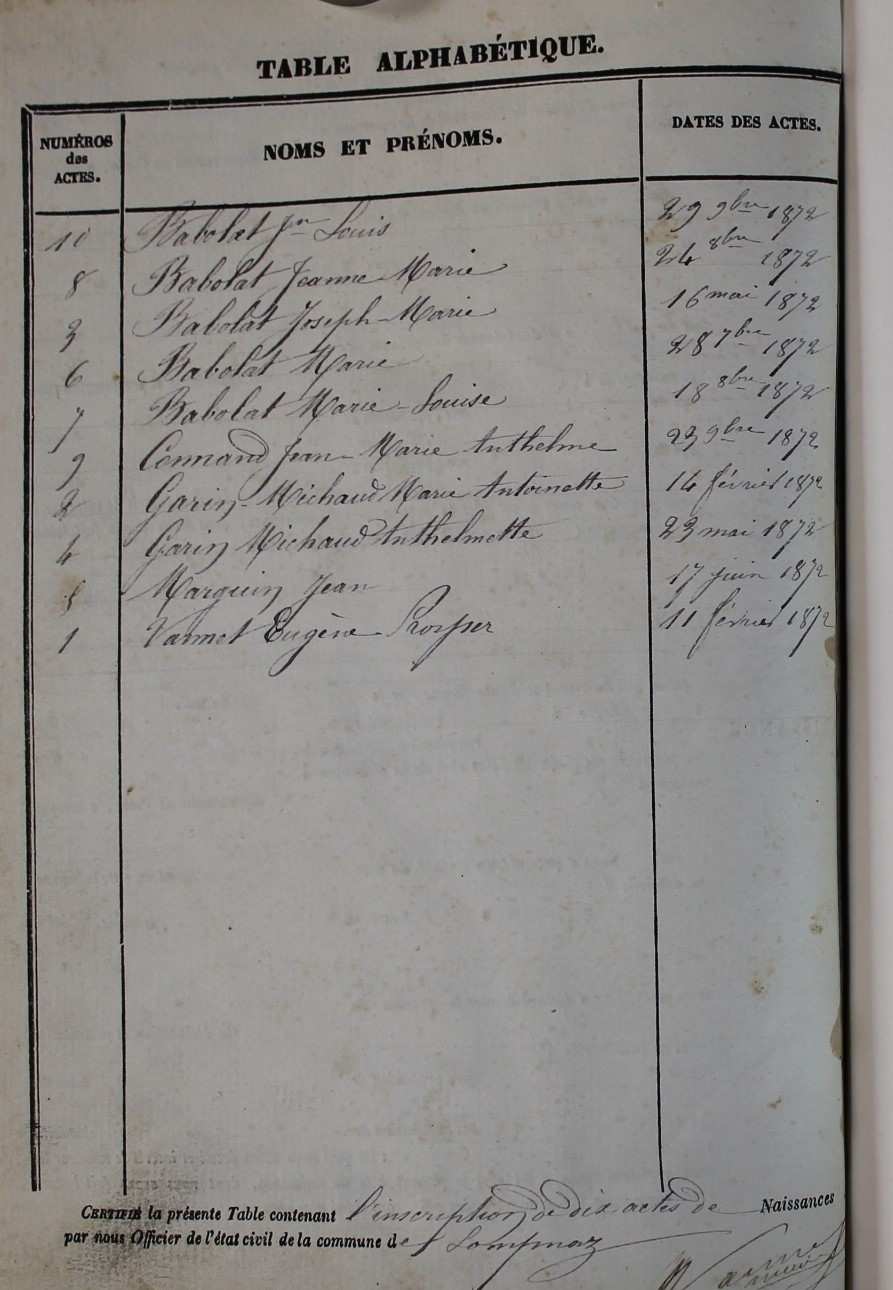 TABLE ALPHABÉTIQUE.
NUMÉROS des ACTES. NOMS ET PRÉNOMS. DATES DES ACTES.
10 Babolat Jn Louis 29 9bre 1872
8 Babolat Jeanne Marie 24 8bre 1872
3 Babolat Joseph-Marie 16 mai 1872
6 Babolat Marie 28 7bre 1872
7 Babolat Marie-Louise 18 8bre 1872
9 Connand Jean-Marie Anthelme 23 9bre 1872
2 Garin-Michaud Marie Antoinette 14 février 1872
4 Garin Michaud Anthelmette 23 mai 1872
5 Marguin Jean 17 juin 1872
1 Vannet Eugène Prosper 11 février 1872
CERTIFIÉ la présente Table contenant l'inscription de dix actes de Naissances
par nous Officier de l'état civil de la commune de Lompnaz